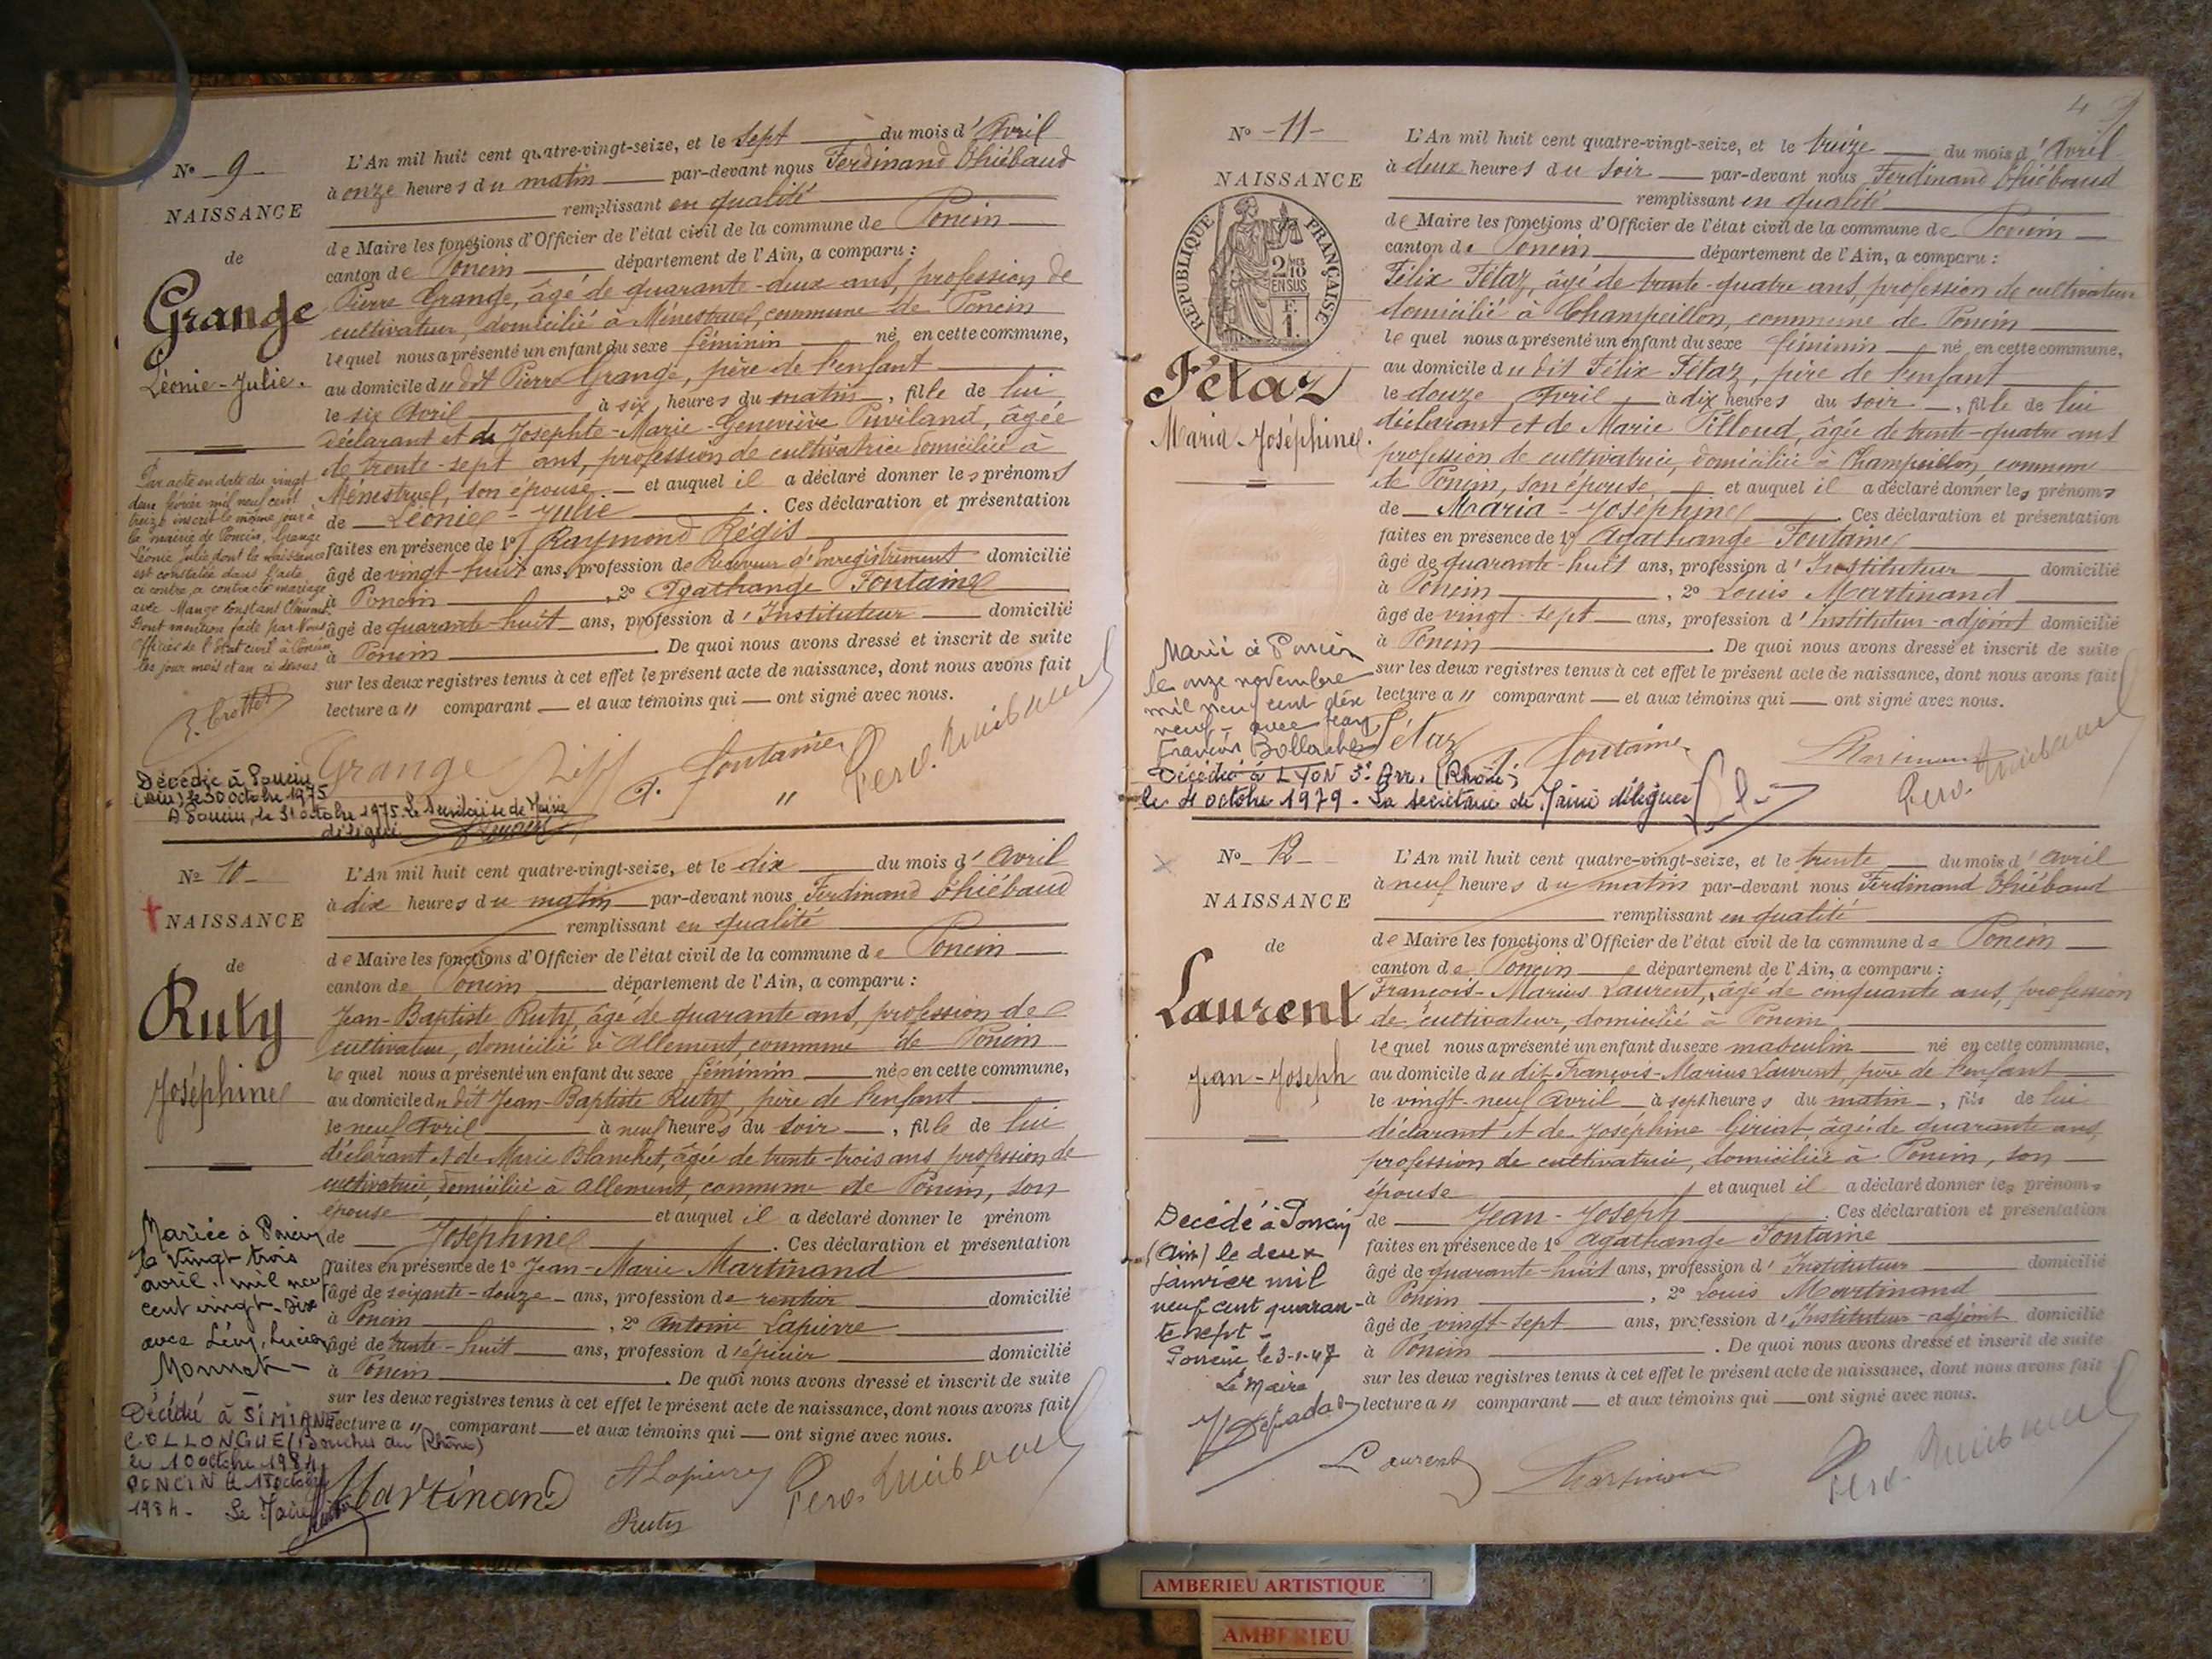 No 9
NAISSANCE
de
Grange
Léonie-Julie.
L'An mil huit cent quatre-vingt-seize, et le sept du mois d'Avril
à onze heures du matin par-devant nous Ferdinand Thiébaud
remplissant en qualité
de Maire les fonctions d'Officier de l'état civil de la commune de Poncin
canton de Poncin département de l'Ain, a comparu :
Pierre Grange, âgé de quarante-deux ans, profession de
cultivateur, domicilié à Ménestruel, commune de Poncin
lequel nous a présenté un enfant du sexe féminin né en cette commune,
au domicile du dit Pierre Grange, père de l'enfant
le six Avril à six heures du matin, fille de lui
déclarant et de Josephte-Marie-Geneviève Puviland, âgée
de trente-sept ans, profession de cultivatrice domiciliée à
Ménestruel, son épouse. et auquel il a déclaré donner les prénoms
de Léonie-Julie. Ces déclaration et présentation
faites en présence de 1° Raymond Régis
âgé de vingt-huit ans, profession de Receveur d'Enregistrement domicilié
à Poncin, 2° Agathange Fontaine
âgé de quarante-huit ans, profession d'Instituteur domicilié
à Poncin. De quoi nous avons dressé et inscrit de suite
sur les deux registres tenus à cet effet le présent acte de naissance, dont nous avons fait
lecture a " comparant et aux témoins qui ont signé avec nous.
Par acte en date du vingt
deux février mil neuf cent
treize inscrit le même jour à
la mairie de Poncin, Grange
Léonie Julie dont la naissance
est constatée dans l'acte
ci contre a contracté mariage
avec Mange Constant Clément
Dont mention faite par Nous
Officier de l'état civil à Poncin
les jour mois et an ci dessus
Grange
A. Fontaine
Ferd. Thiébaud
Décédée à Poncin
(Ain) le 30 octobre 1975
A Poncin, le 31 octobre 1975. Le Secrétaire de Mairie
délégué
No 10
NAISSANCE
de
Ruty
Joséphine
L'An mil huit cent quatre-vingt-seize, et le dix du mois d'avril
à dix heures du matin par-devant nous Ferdinand Thiébaud
remplissant en qualité
de Maire les fonctions d'Officier de l'état civil de la commune de Poncin
canton de Poncin département de l'Ain, a comparu :
Jean-Baptiste Ruty, âgé de quarante ans, profession de
cultivateur, domicilié à Allement, commune de Poncin
lequel nous a présenté un enfant du sexe féminin née en cette commune,
au domicile du dit Jean-Baptiste Ruty, père de l'enfant
le neuf Avril à neuf heures du soir, fille de lui
déclarant et de Marie Blanchet, âgée de trente-trois ans, profession de
cultivatrice, domiciliée à Allement, commune de Poncin, son
épouse et auquel il a déclaré donner le prénom
de Joséphine. Ces déclaration et présentation
faites en présence de 1° Jean-Marie Martinand
âgé de soixante-douze ans, profession de rentier domicilié
à Poncin, 2° Antoine Lapierre
âgé de trente-huit ans, profession d'épicier domicilié
à Poncin. De quoi nous avons dressé et inscrit de suite
sur les deux registres tenus à cet effet le présent acte de naissance, dont nous avons fait
lecture a " comparant et aux témoins qui ont signé avec nous.
Mariée à Poncin
le vingt trois
avril mil neuf
cent vingt-six
avec Lévy, Lucien
Monnet
Décédée à SIMIANE
COLLONGUE (Bouches du Rhône)
le 10 octobre 1984
PONCIN le 18 octobre
1984. Le Maire
Martinand
A Lapierre
Ruty
Ferd. Thiébaud
4
No 11
NAISSANCE
RÉPUBLIQUE FRANÇAISE
2/10 EN SUS
F. 1.
Fétaz
Maria-Joséphine.
L'An mil huit cent quatre-vingt-seize, et le treize du mois d'Avril
à deux heures du soir par-devant nous Ferdinand Thiébaud
remplissant en qualité
de Maire les fonctions d'Officier de l'état civil de la commune de Poncin
canton de Poncin département de l'Ain, a comparu :
Félix Fétaz, âgé de trente-quatre ans, profession de cultivateur
domicilié à Champeillon, commune de Poncin
lequel nous a présenté un enfant du sexe féminin né en cette commune,
au domicile du dit Félix Fétaz, père de l'enfant
le douze Avril à dix heures du soir, fille de lui
déclarant et de Marie Pilloud, âgée de trente-quatre ans
profession de cultivatrice, domiciliée à Champeillon, commune
de Poncin, son épouse, et auquel il a déclaré donner les prénoms
de Maria-Joséphine. Ces déclaration et présentation
faites en présence de 1° Agathange Fontaine
âgé de quarante-huit ans, profession d'Instituteur domicilié
à Poncin, 2° Louis Martinand
âgé de vingt-sept ans, profession d'Instituteur-adjoint domicilié
à Poncin. De quoi nous avons dressé et inscrit de suite
sur les deux registres tenus à cet effet le présent acte de naissance, dont nous avons fait
lecture a " comparant et aux témoins qui ont signé avec nous.
Marié à Poncin
le onze novembre
mil neuf cent dix
neuf - avec Jean
François
Fétaz
A. Fontaine
Martinand
Ferd. Thiébaud
Décédée à LYON 3e Arr. (Rhône)
le 4 octobre 1979. La secrétaire de Mairie déléguée
No 12
NAISSANCE
de
Laurent
Jean-Joseph
L'An mil huit cent quatre-vingt-seize, et le trente du mois d'avril
à neuf heures du matin par-devant nous Ferdinand Thiébaud
remplissant en qualité
de Maire les fonctions d'Officier de l'état civil de la commune de Poncin
canton de Poncin département de l'Ain, a comparu :
François-Marius Laurent, âgé de cinquante ans, profession
de cultivateur, domicilié à Poncin
lequel nous a présenté un enfant du sexe masculin né en cette commune,
au domicile du dit François-Marius Laurent, père de l'enfant
le vingt-neuf Avril à sept heures du matin, fils de lui
déclarant et de Joséphine Giriat, âgée de quarante ans,
profession de cultivatrice, domiciliée à Poncin, son
épouse et auquel il a déclaré donner les prénoms
de Jean-Joseph. Ces déclaration et présentation
faites en présence de 1° Agathange Fontaine
âgé de quarante-huit ans, profession d'Instituteur domicilié
à Poncin, 2° Louis Martinand
âgé de vingt-sept ans, profession d'Instituteur-adjoint domicilié
à Poncin. De quoi nous avons dressé et inscrit de suite
sur les deux registres tenus à cet effet le présent acte de naissance, dont nous avons fait
lecture a " comparant et aux témoins qui ont signé avec nous.
Décédé à Poncin
(Ain) le deux
janvier mil
neuf cent quaran-
te sept -
Poncin le 3-1-47
Le Maire
Laurent
Martinand
Ferd. Thiébaud
AMBERIEU ARTISTIQUE
AMBERIEU